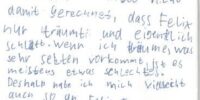 damit gerechnet, dass Felix
nur träumt und eigentlich
schläft. wenn ich träume, was
sehr selten vorkommt, ist es
meistens etwas schlechtes.
Deshalb hatte ich mich vielleicht
auch so an